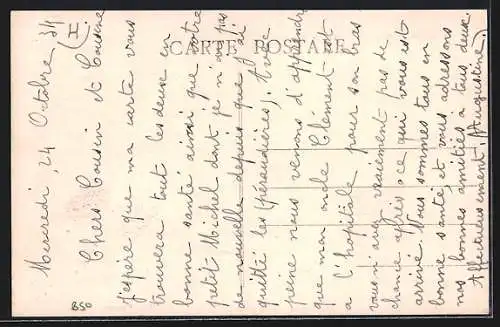 CARTE POSTALE
Mercredi, 24 Octobre 34
(I)
Chers Cousin et Cousine
J'espère que ma carte vous
trouvera tout les deux en
bonne santé ainsi que votre
petit Michel dont je n'ai pas
de nouvelle depuis que j'ai
quitté les (péraudières). Avec
peine nous venons d'apprendre
que mon oncle Clément est
a l'hopital pour son bras
vous n'avez vraiement pas de
chance après ce qui vous est
arrivé. Nous sommes tous en
bonne santé et vous adressons
nos bonnes amitiés a tous deux.
Affectueusement. (Augustine)
B50